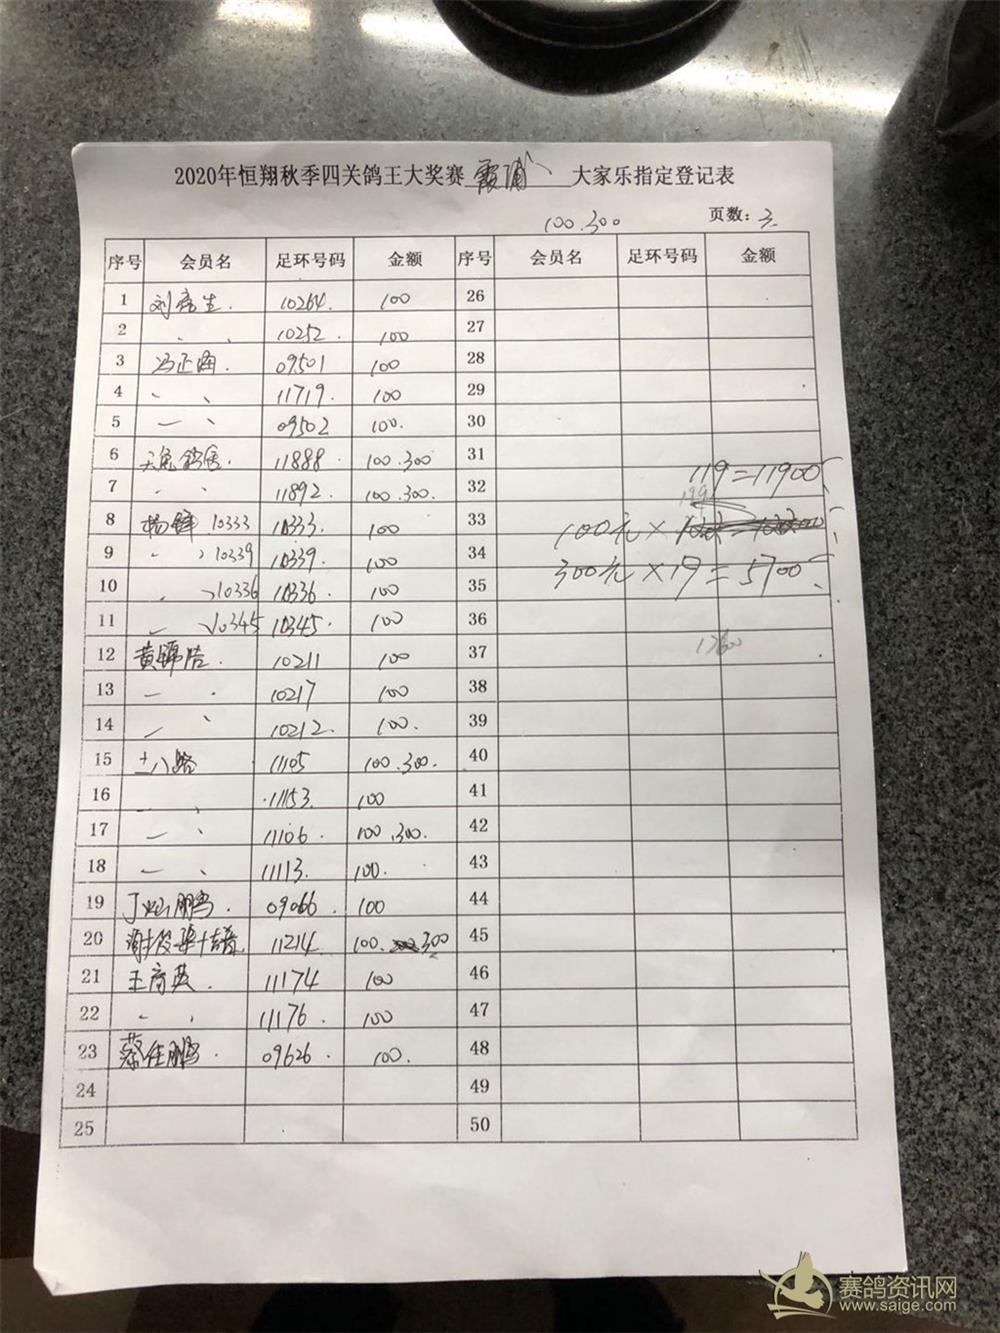 2020年恒翔秋季四关鸽王大奖赛 霞浦 大家乐指定登记表
100.300 页数：三
序号 会员名 足环号码 金额 序号 会员名 足环号码 金额
1 刘 生. 10264. 100 26
2 10252. 100 27
3 冯正 09501 100 28
4 11719. 100 29
5 09502 100. 30
6 11888. 100.300 31
119=11900
7 11892. 100.300. 32
8 杨锋 10333 10333. 100 33
100元×
9 10339 10339. 100 34
300元×19=5700
10 10336 10336. 100 35
11 10345 10345. 100 36
12 黄锦 10211 100 37
13 10217 100 38
14 10212. 100. 39
15 十八路 11105 100.300. 40
16 11153. 100 41
17 11106. 100.300. 42
18 11113. 100. 43
19 丁灿鹏. 09066. 100 44
20 11214. 100. 300 45
21 王育英. 11174 100 46
22 11176. 100 47
23 蔡任鹏. 09626. 100. 48
24 49
25 50
赛鸽资讯网
www.saige.com